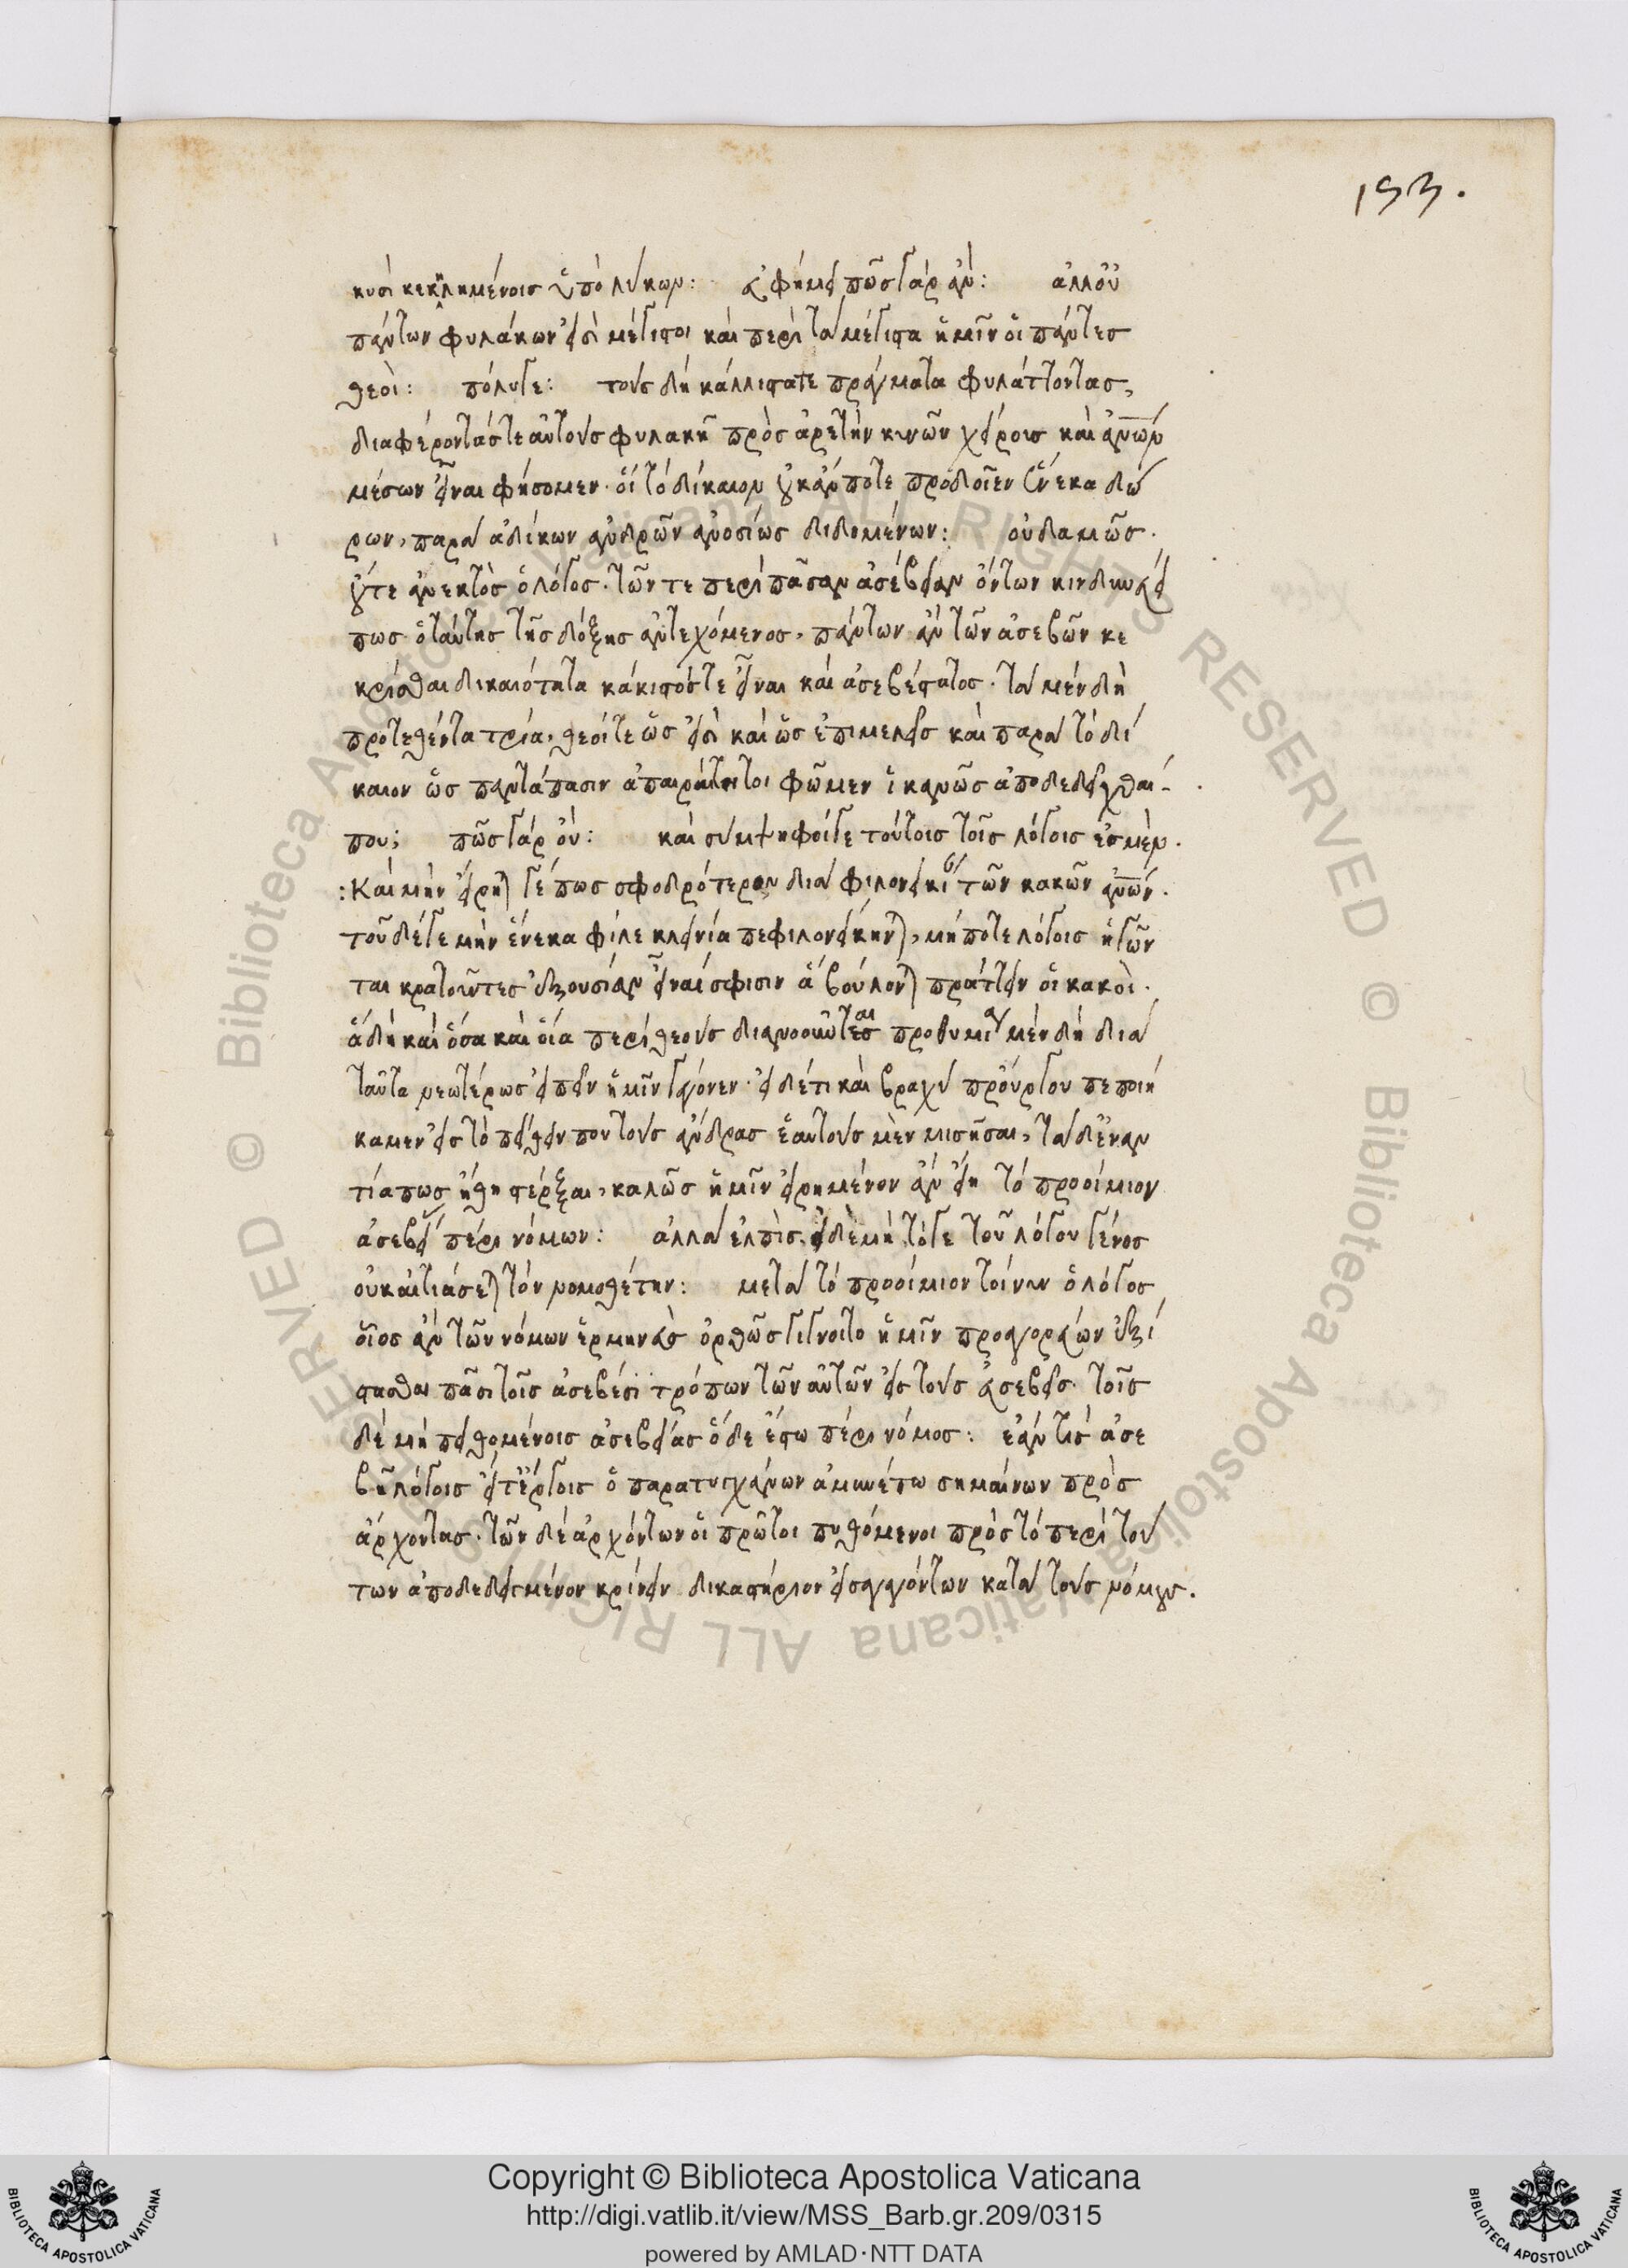 153.
κυσὶ κεκηλημένοις ὑπὸ λύκων: εὐφήμει πῶς γὰρ ἄν: ἀλλ οὐ
πάντων φυλάκων εἰσὶ μέγιστοι καὶ περὶ τὰ μέγιστα ἡμῖν οἱ πάντες
θεοί: πολύ γε: τοὺς δὴ κάλλιστά τε πράγματα φυλάττοντας,
διαφέροντάς τε αὐτοὺς φυλακῇ πρὸς ἀρετὴν κυνῶν χείρους καὶ ἀνων
μέσων εἶναι φήσομεν. οἳ τὸ δίκαιον οὐκ ἄν ποτε προδοῖεν ἕνεκα δώ
ρων, παρὰ ἀδίκων ἀνδρῶν ἀνοσίως διδομένων: οὐδαμῶς.
οὔτε ἀνεκτὸς ὁ λόγος. τῶν τε περὶ πᾶσαν ἀσέβειαν ὄντων κινδυνεύει
πως ὁ ταύτης τῆς δόξης ἀντεχόμενος, πάντων ἂν τῶν ἀσεβῶν κε
κρίσθαι δικαιότατα κάκιστός τε εἶναι καὶ ἀσεβέστατος. τὰ μὲν δὴ
προτεθέντα τρία, θεοί τε ὡς εἰσὶ καὶ ὡς ἐπιμελεῖς καὶ παρὰ τὸ δί
καιον ὡς παντάπασιν ἀπαραίτητοι φῶμεν ἱκανῶς ἀποδεδεῖχθαί
που; πῶς γὰρ οὔ: καὶ σύμψηφοί γε τούτοις τοῖς λόγοις ἐσμέν.
:Καὶ μὴν εἴρηται γέ πως σφοδρότερον διὰ φιλονεικίαν τῶν κακῶν ἀνων.
τοῦδέ γε μὴν ἕνεκα φίλε κλεινία πεφιλονείκηνται, μή ποτε λόγοις ἡγῶν
ται κρατοῦντες ἐξουσίαν εἶναί σφισιν ἃ βούλονται πράττειν οἱ κακοί.
ἃ δὴ καὶ ὅσα καὶ οἷα περὶ θεοὺς διανοοῦνται προθυμία μὲν δὴ διὰ
ταῦτα νεωτέρως εἰπεῖν ἡμῖν γέγονεν. εἰ δέ τι καὶ βραχὺ προὔργου πεποιή
καμεν εἰς τὸ πείθειν πῃ τοὺς ἄνδρας ἑαυτοὺς μὲν μισῆσαι, τὰ δ ἐναν
τία πως ἤθη στέρξαι, καλῶς ἡμῖν εἰρημένον ἂν εἴη τὸ προοίμιον
ἀσεβείας πέρι νόμων: ἀλλὰ ἐλπίς. εἰ δὲ μὴ τό γε τοῦ λόγου γένος
οὐκ αἰτιάσεται τὸν νομοθέτην: μετὰ τὸ προοίμιον τοίνυν ὁ λόγος
οἷος ἂν τῶν νόμων ἑρμηνεὺς ὀρθῶς γίγνοιτο ἡμῖν προαγορεύων ἐξί
στασθαι πᾶσι τοῖς ἀσεβέσι τρόπων τῶν αὐτῶν εἰς τοὺς εὐσεβεῖς. τοῖς
δὲ μὴ πειθομένοις ἀσεβείας ὅδε ἔστω πέρι νόμος: ἐάν τις ἀσε
βῇ λόγοις εἴτ ἔργοις ὁ παρατυγχάνων ἀμυνέτω σημαίνων πρὸς
ἄρχοντας. τῶν δὲ ἀρχόντων οἱ πρῶτοι πυθόμενοι πρὸς τὸ περὶ τού
των ἀποδεδειγμένον κρίνειν δικαστήριον εἰσαγαγόντων κατὰ τοὺς νόμους.
© Biblioteca Apostolica Vaticana ALL RIGHTS RESERVED © Biblioteca Apostolica Vaticana ALL RIGHTS RESERVED
Copyright © Biblioteca Apostolica Vaticana
http://digi.vatlib.it/view/MSS_Barb.gr.209/0315
powered by AMLAD·NTT DATA
BIBLIOTECA APOSTOLICA VATICANA
BIBLIOTECA APOSTOLICA VATICANA